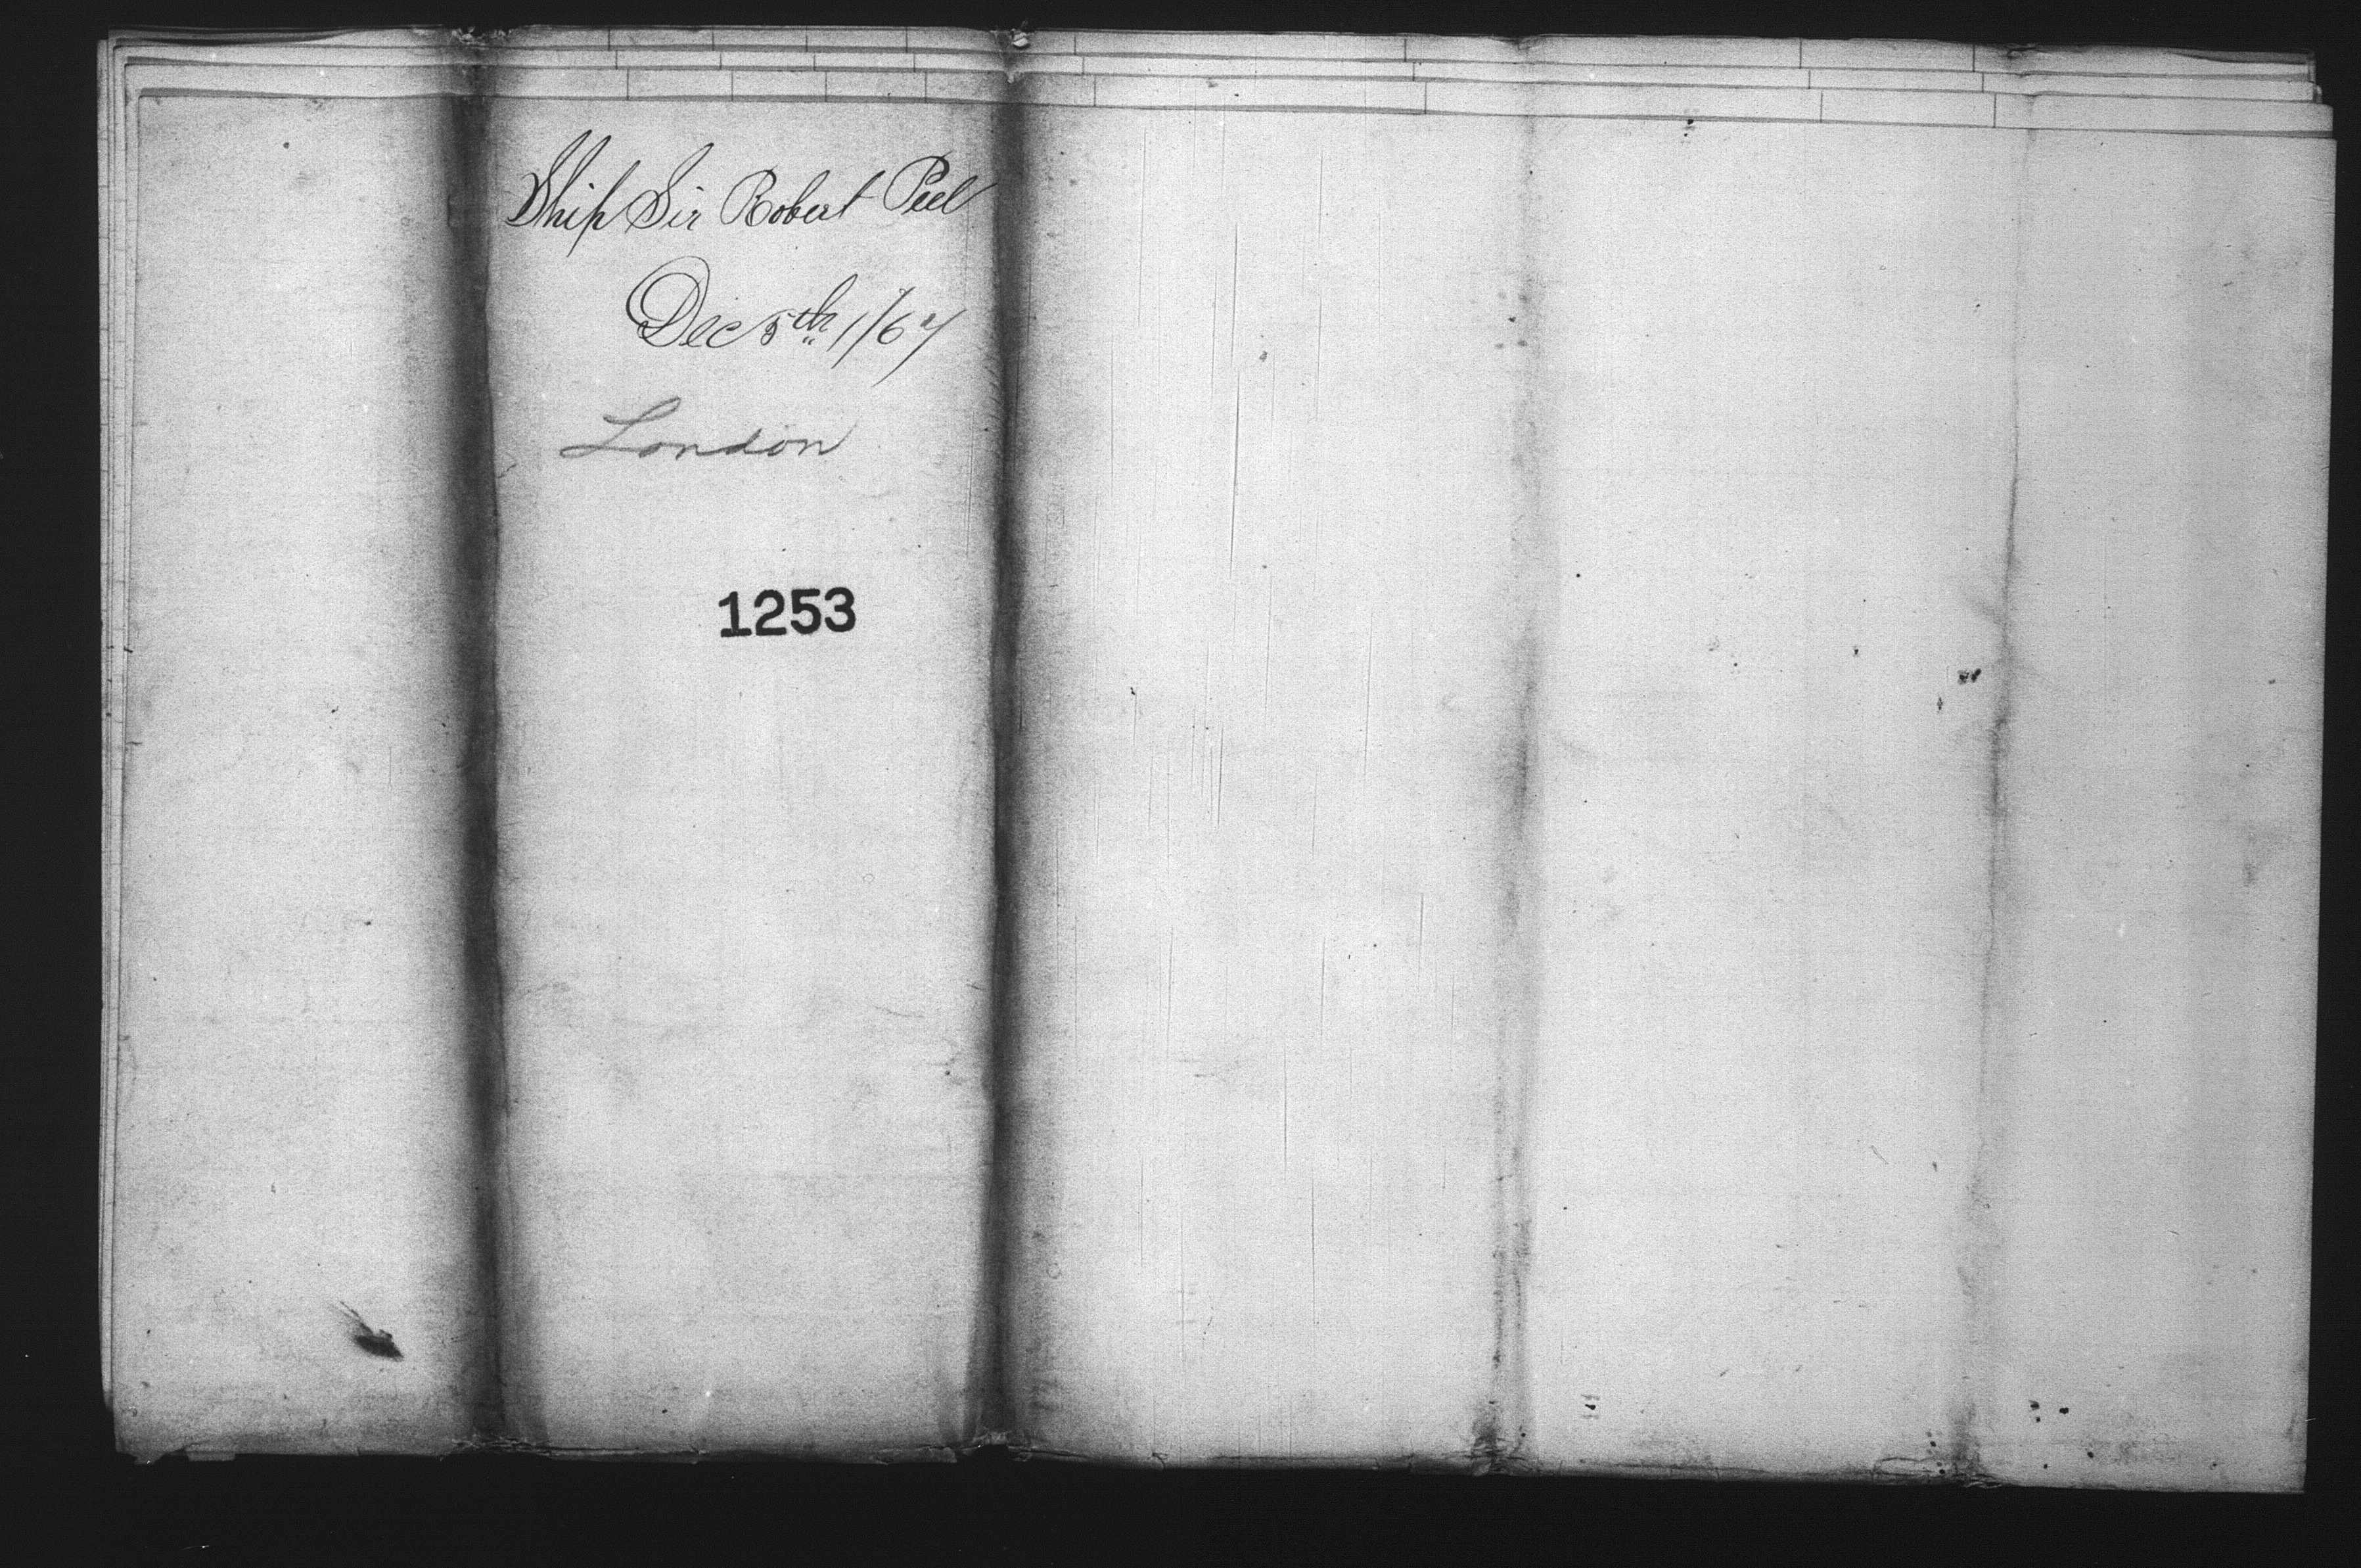 Ship Sir Robert Peel
Dec 5th 1/67
London
1253